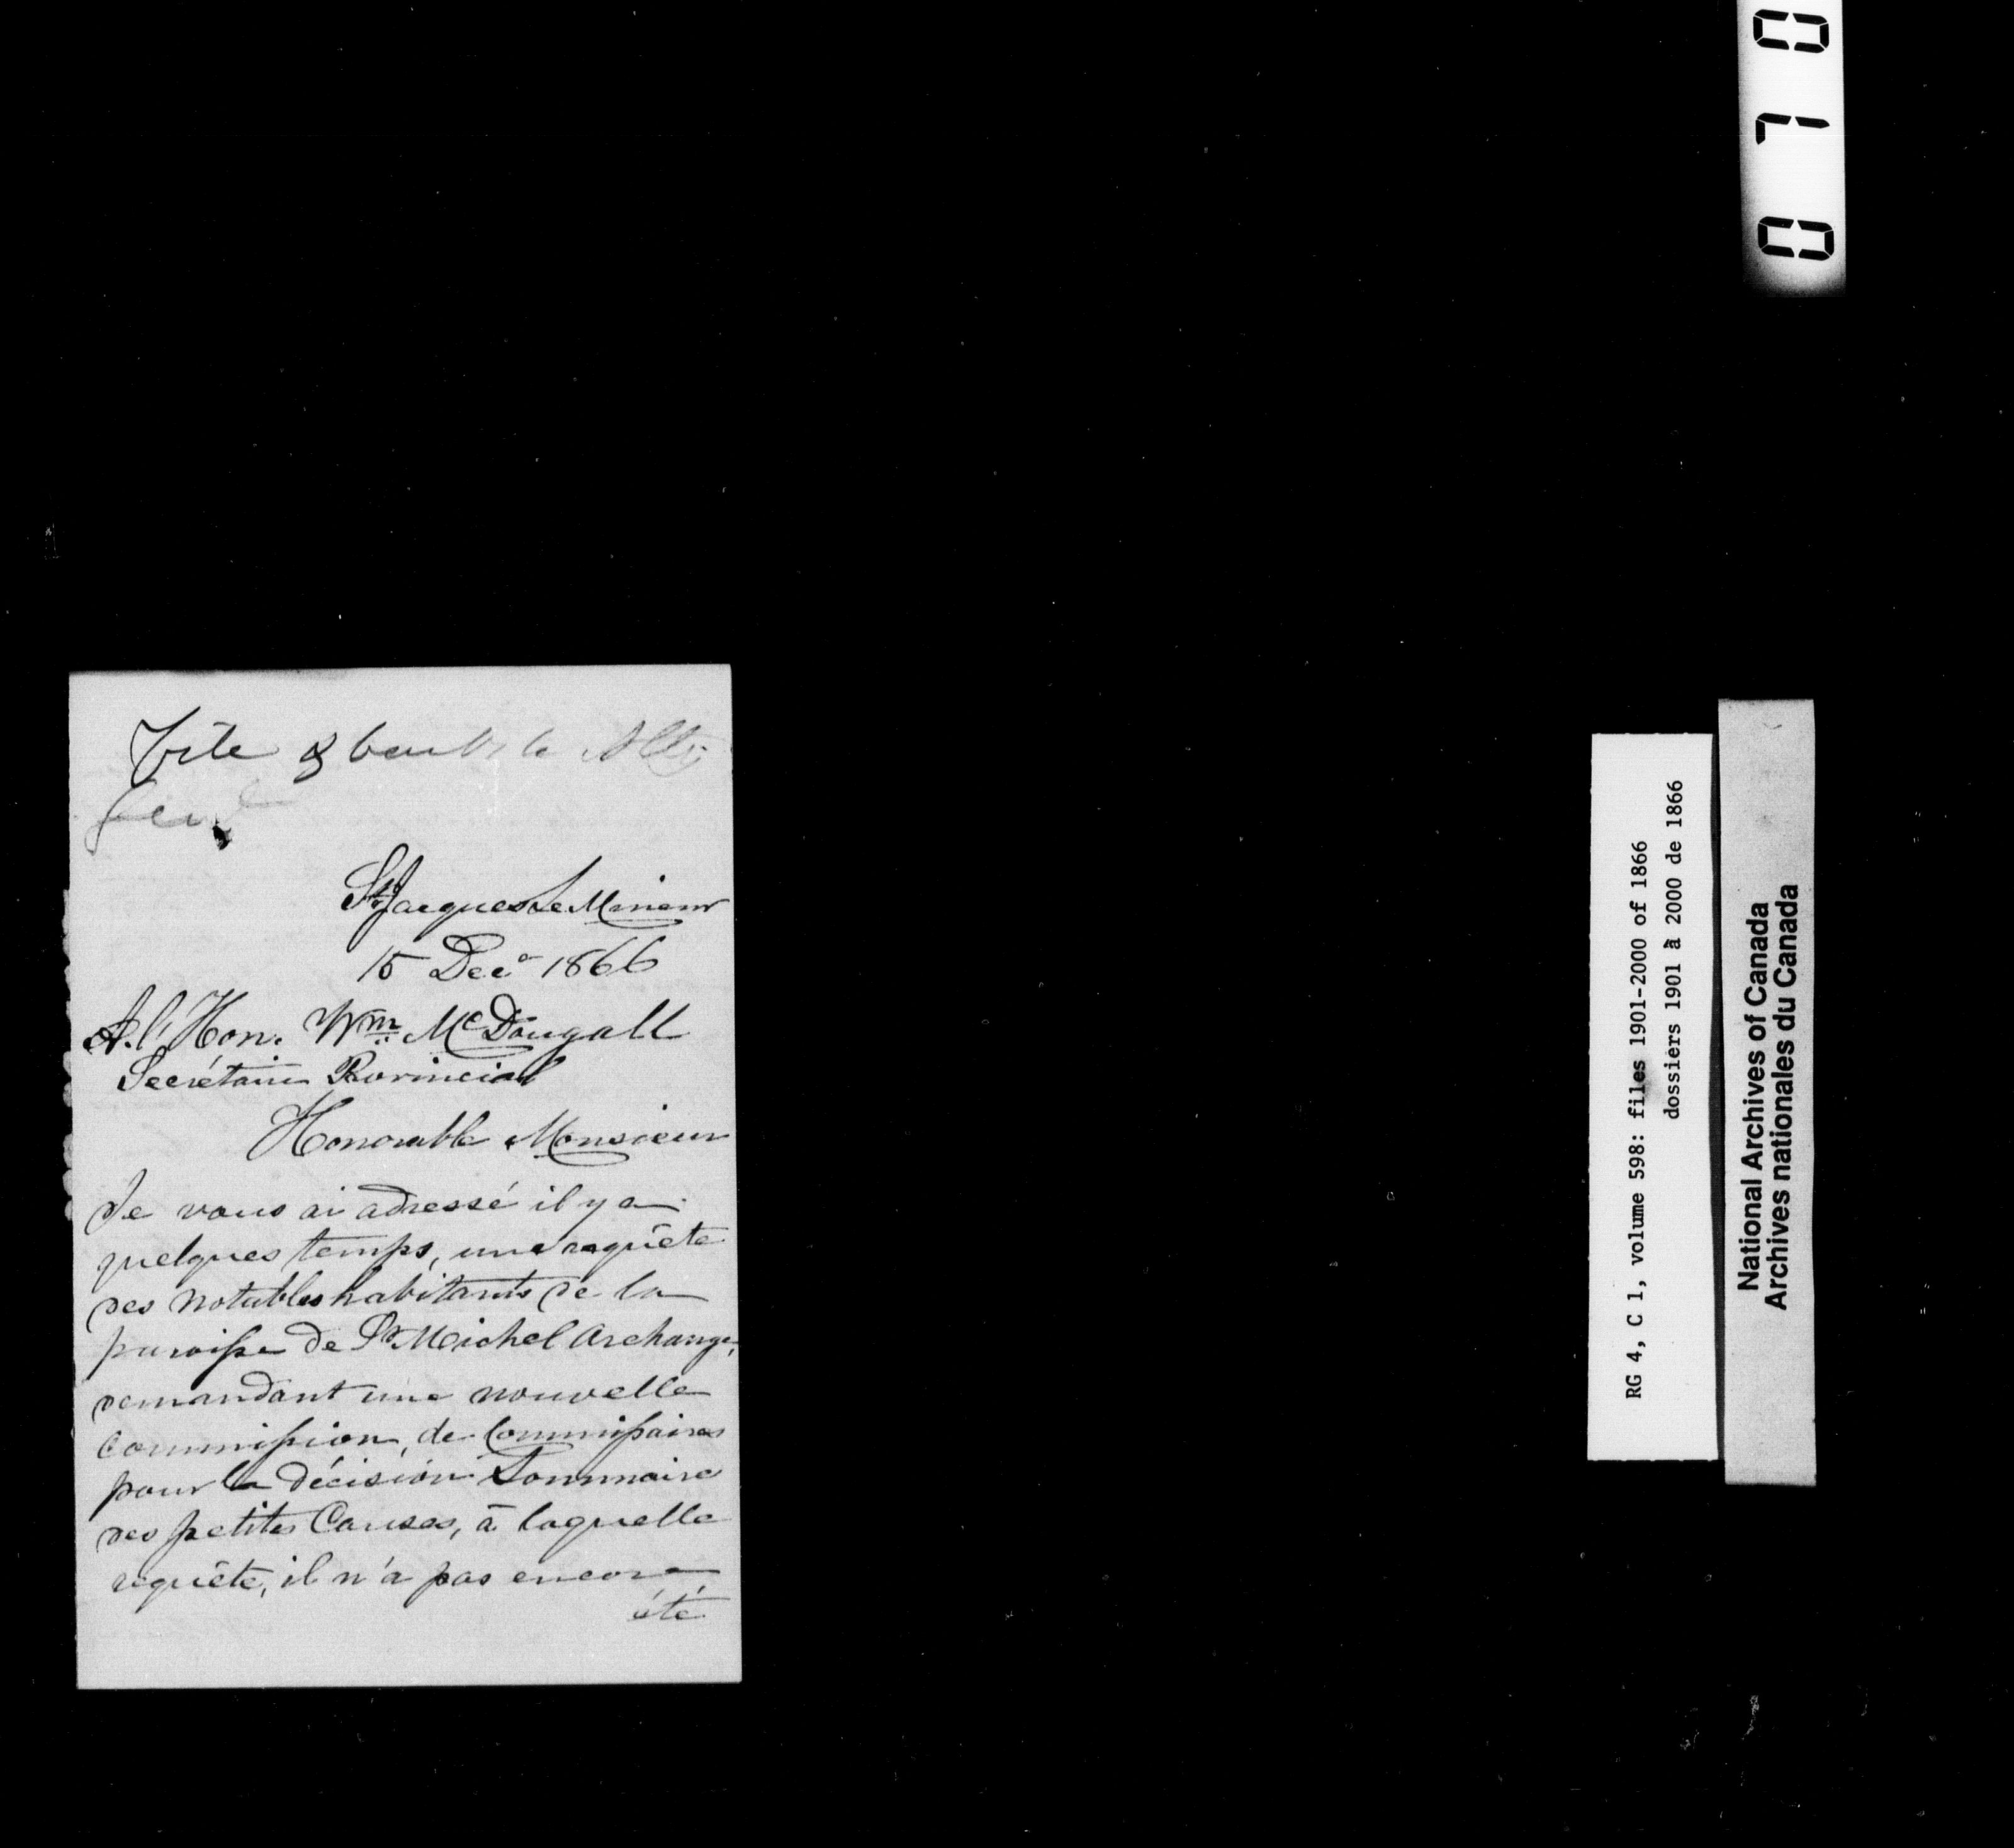 St Jacques Le Mineur
15 Dec. 1866
A. l'Hon. Wm Mc Dougall
Secrétaire Provincial
Honorable Monsieur
Je vous ai adressé il y a
quelques temps, une requête
des notables habitants de la
paroisse de St Michel Archange,
demandant une nouvelle
commission, de Commissaires
pour la décision Sommaire
des petites Causes, à laquelle
requête, il n'a pas encore
été
RG 4, C 1, volume 598: files 1901-2000 of 1866
dossiers 1901 à 2000 de 1866
National Archives of Canada
Archives nationales du Canada
0 7 0